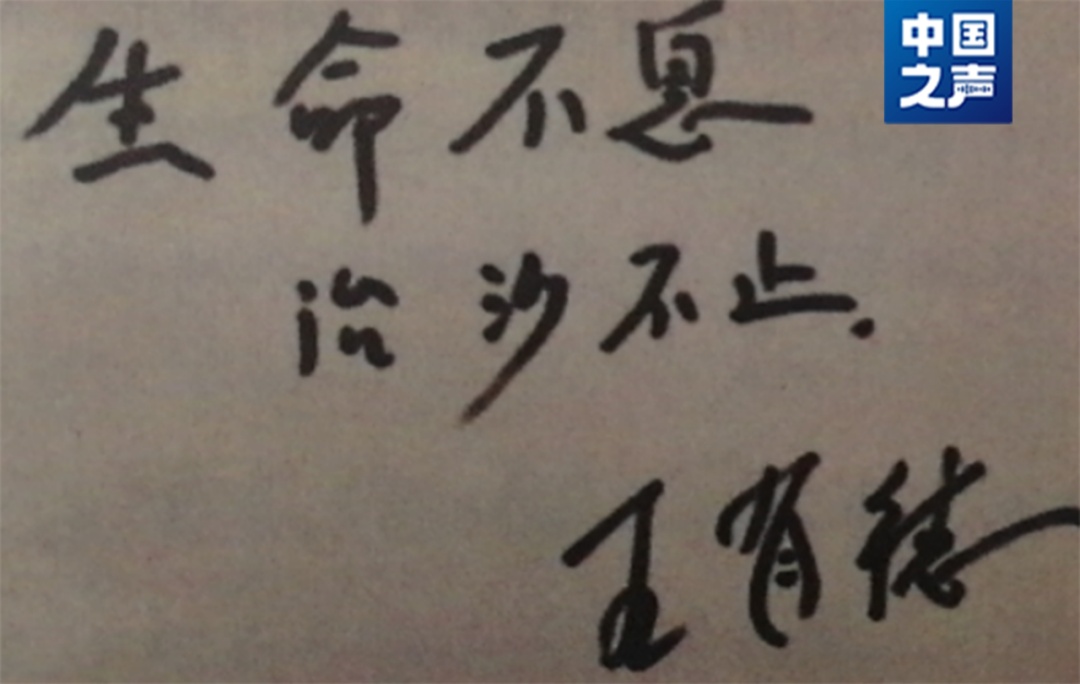 生命不息
治沙不止.
王有德
中国
之声